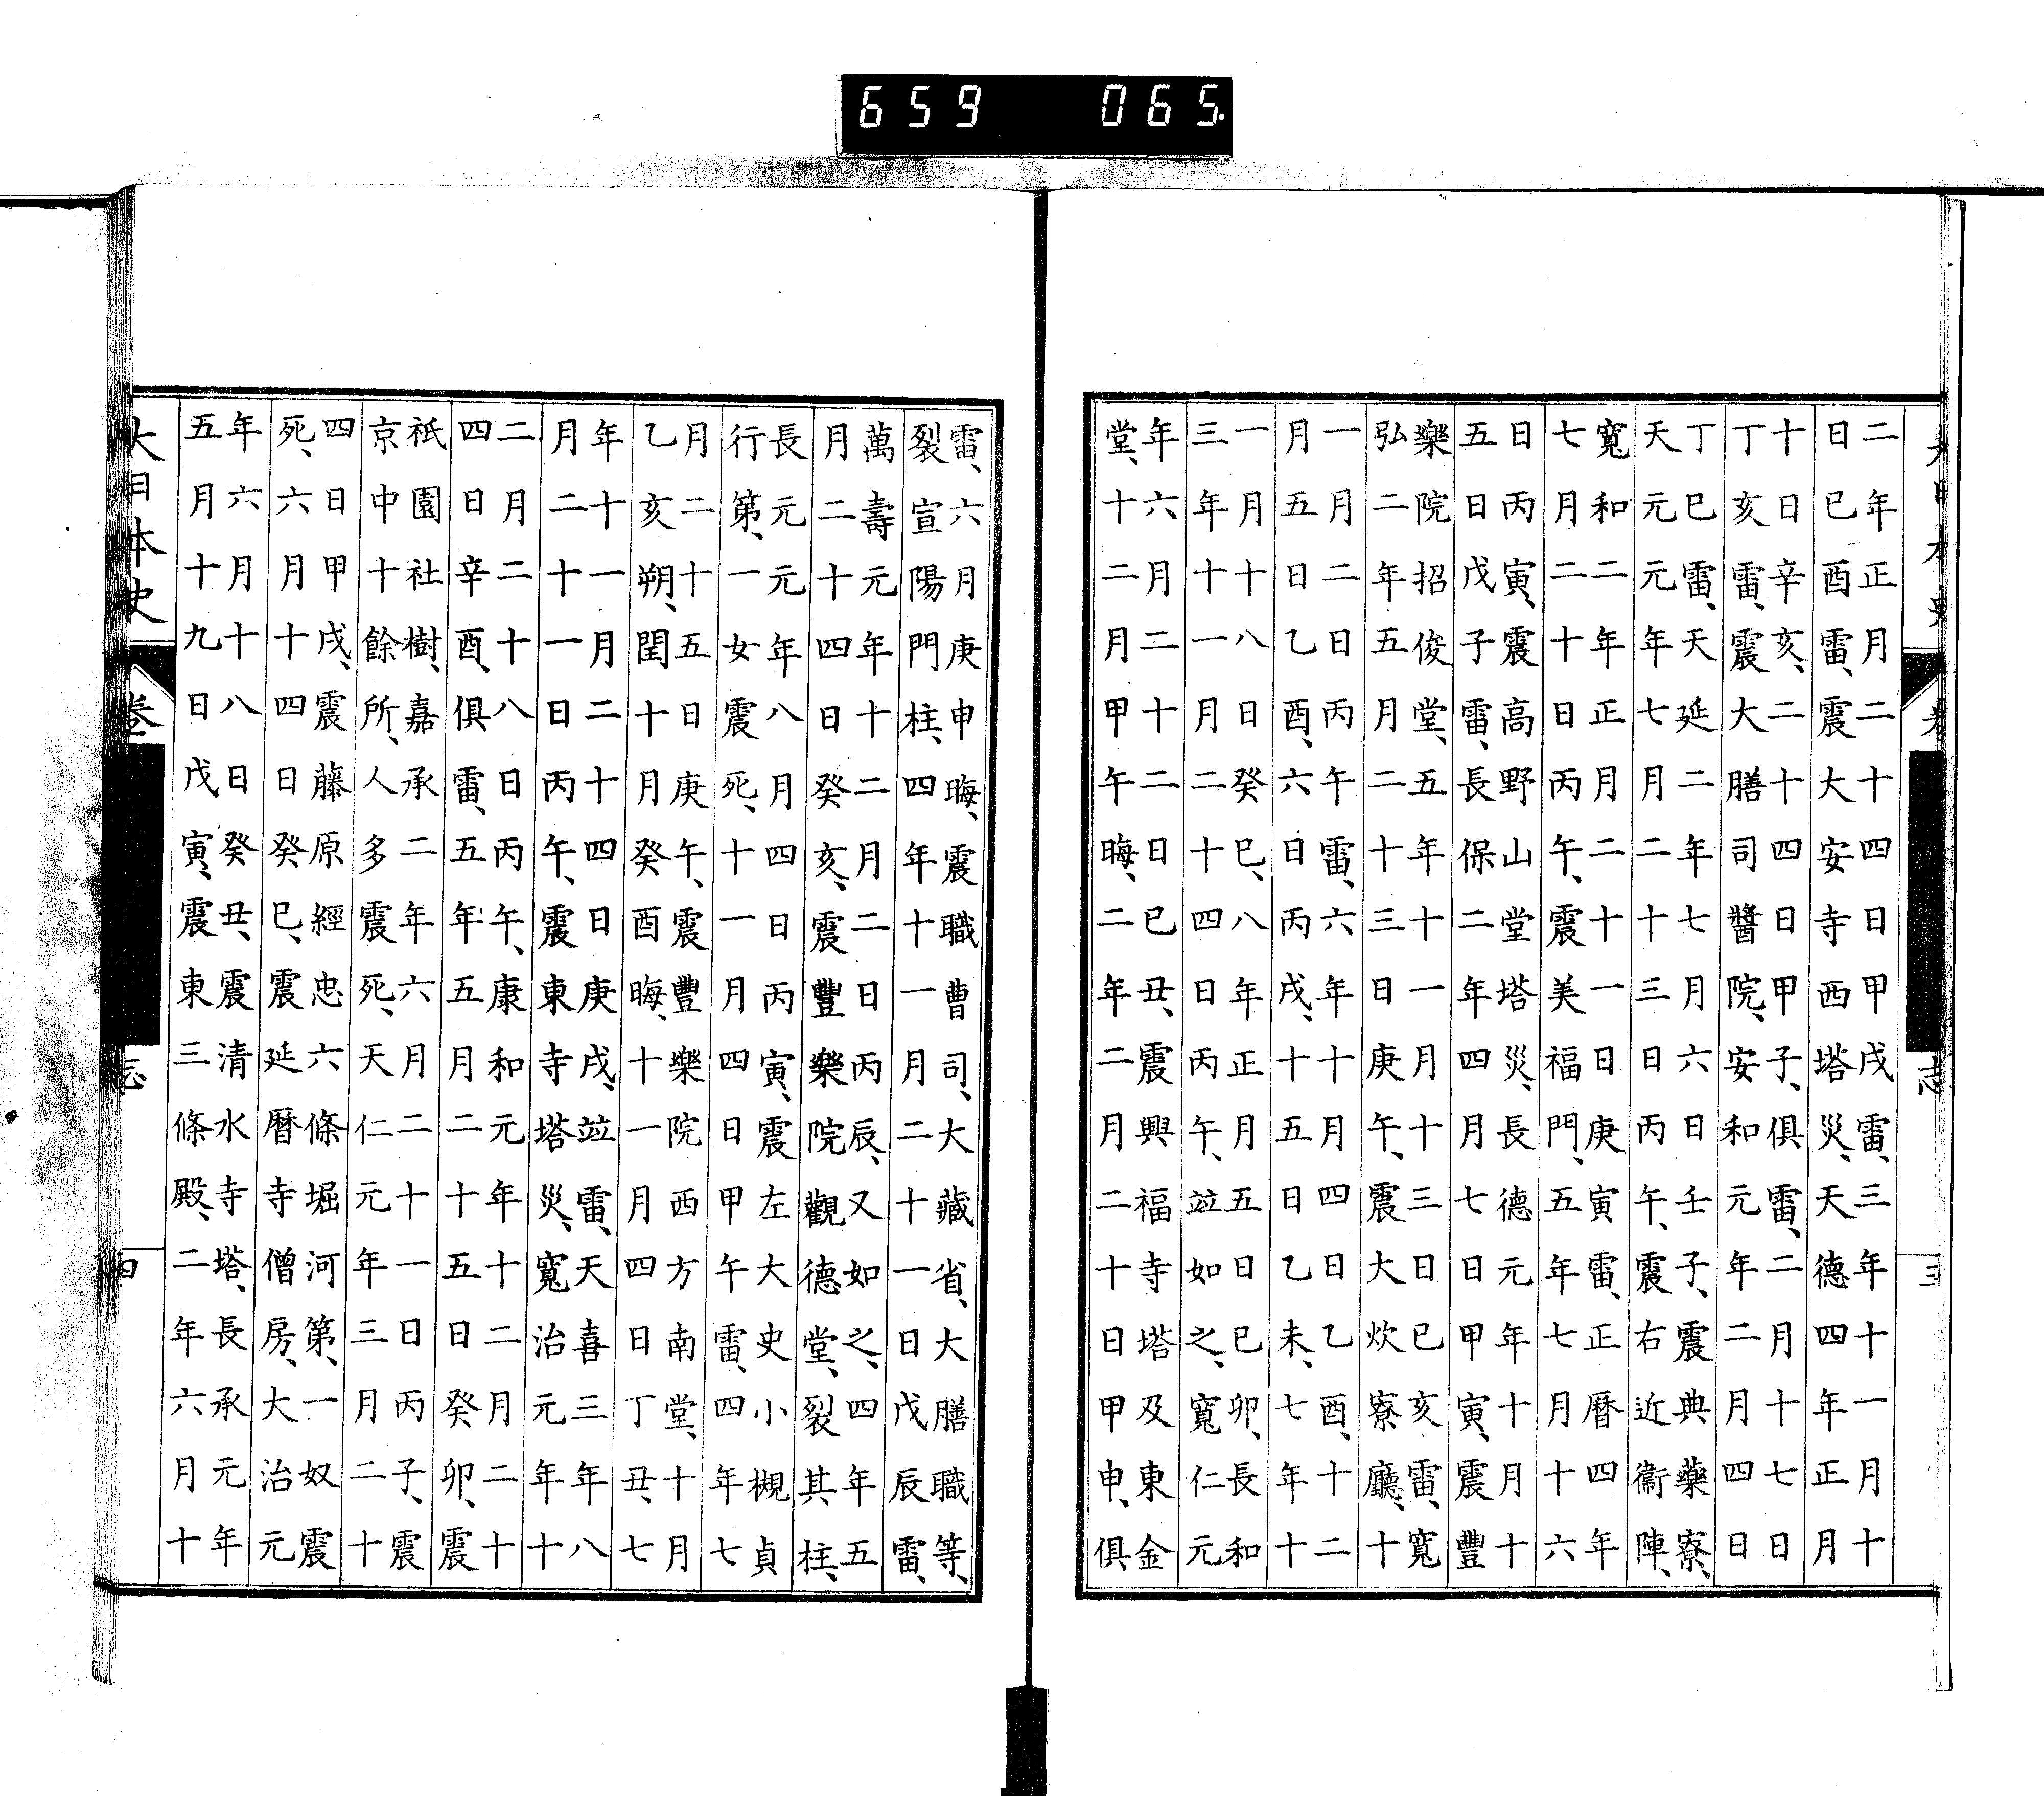 大日本史
卷
志
三
二年正月二十四日甲戌雷、三年十一月十
日已酉雷、震大安寺西塔災、天德四年正月
十日辛亥、二十四日甲子、俱雷、二月十七日
丁亥雷、震大膳司醬院、安和元年二月四日
丁巳雷、天延二年七月六日壬子、震典藥寮、
天元元年七月二十三日丙午、震右近衞陣、
寬和二年正月二十一日庚寅雷、正曆四年
七月二十日丙午、震美福門、五年七月十六
日丙寅、震高野山堂塔災、長德元年十月十
五日戊子雷、長保二年四月七日甲寅、震豐
樂院招俊堂、五年十一月十三日已亥雷、寬
弘二年五月二十三日庚午、震大炊寮廳、十
一月二日丙午雷、六年十月四日乙酉、十二
月五日乙酉、六日丙戌、十五日乙未、七年十
一月十八日癸巳、八年正月五日已卯、長和
三年十一月二十四日丙午、竝如之、寬仁元
年六月二十二日已丑、震興福寺塔及東金
堂、十二月甲午晦、二年二月二十日甲申、俱
雷、六月庚申晦、震職曹司、大藏省、大膳職等、
裂宣陽門柱、四年十一月二十一日戊辰雷、
萬壽元年十二月二日丙辰、又如之、四年五
月二十四日癸亥、震豐樂院觀德堂、裂其柱、
長元元年八月四日丙寅、震左大史小槻貞
行第、一女震死、十一月四日甲午雷、四年七
月二十五日庚午、震豐樂院西方南堂、十月
乙亥朔、閏十月癸酉晦、十一月四日丁丑、七
年十一月二十四日庚戌、竝雷、天喜三年八
月二十一日丙午、震東寺塔災、寬治元年十
二月二十八日丙午、康和元年十二月二十
四日辛酉、俱雷、五年五月二十五日癸卯、震
祇園社樹、嘉承二年六月二十一日丙子、震
京中十餘所、人多震死、天仁元年三月二十
四日甲戌、震藤原經忠六條堀河第、一奴震
死、六月十四日癸巳、震延曆寺僧房、大治元
年六月十八日癸丑、震清水寺塔、長承元年
五月十九日戊寅、震東三條殿、二年六月十
大日本史
卷
志
四